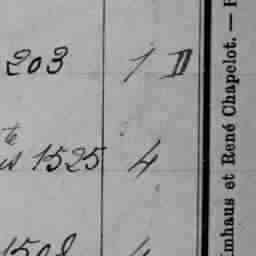 203 1 D
is 1525 4
1508
Imhaus et René Chapelot. —